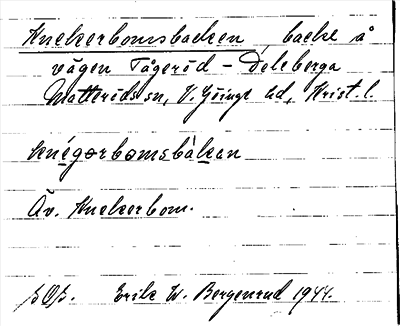 Knekerbomsbacken, backe å
vägen Tågeröd - Deleberga
Matteröds sn, V. Göinge hd, Krist. l.
knégorbomsbàkan
Äv. Knekerbom.
Erik W. Bergenrud 1944.